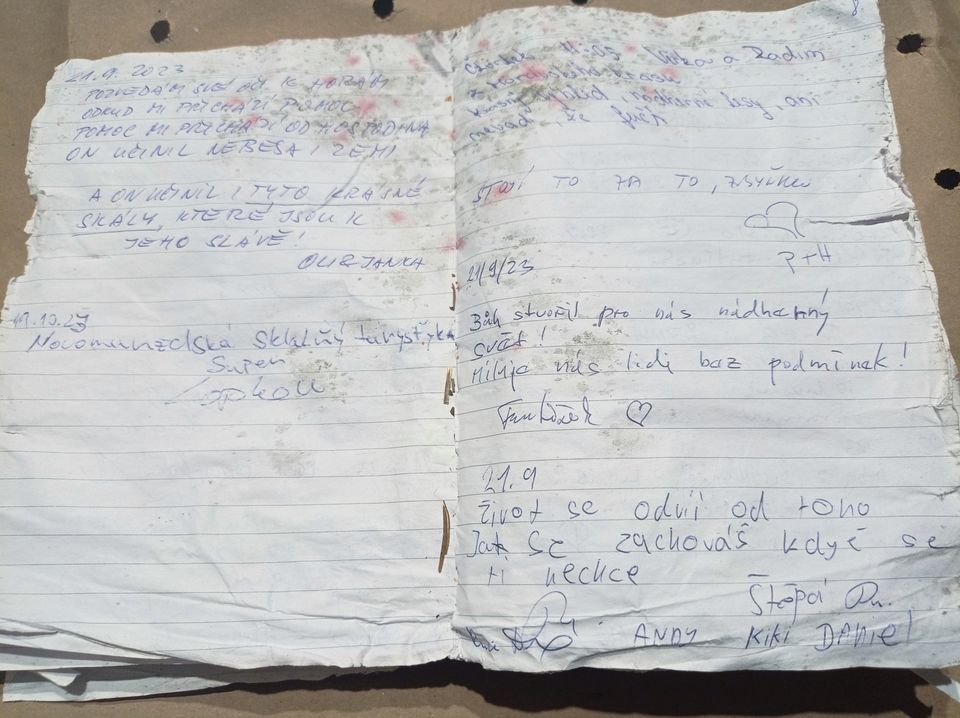 21.9.2023
POZVEDÁM SVÉ OČI K HORÁM
ODKUD MI PŘICHÁZÍ POMOC
POMOC MI PŘICHÁZÍ OD HOSPODINA
ON UČINIL NEBESA I ZEMI
A ON UČINIL I TYTO KRÁSNÉ
SKÁLY, KTERÉ JSOU K
JEHO SLÁVĚ!
OLI & JANKA
11.10.23
Super
8
11:05 Jitka a Radim
z Moravského krasu
krásný výhled, nádherné lesy, ani
nevadí, že fučí
STOJÍ TO ZA TO,
P+H
21/9/23
Bůh stvořil pro nás nádherný
svět!
Miluje nás lidi baz podmínek!
21.9
Život se odvíí od toho
Jak se zachováš když se
ti nechce
Štěpá
ANDY KIKI DANIEL